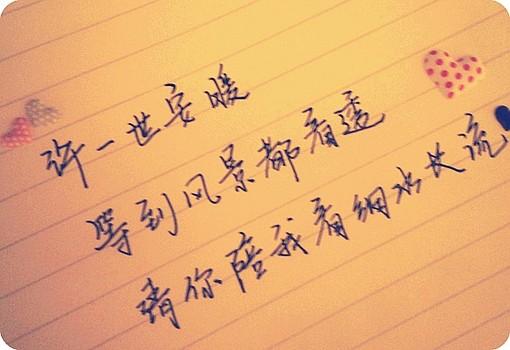 许一世安暖
等到风景都看透
请你陪我看细水长流